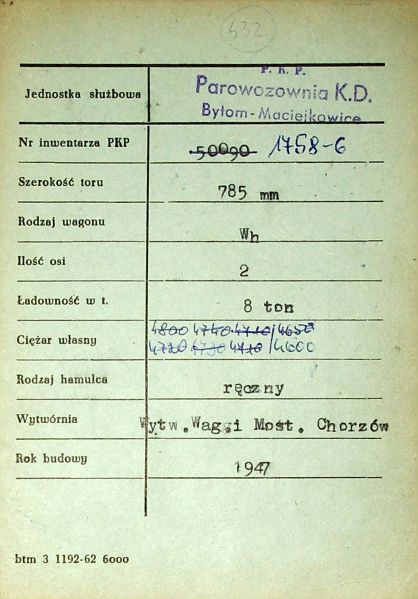 532
P. K. P.
Jednostka służbowa Parowozownia K.D.
Bytom-Maciejkowice
Nr inwentarza PKP 50090 1758-6
Szerokość toru 785 mm
Rodzaj wagonu Wh
Ilość osi 2
Ładowność w t. 8 ton
4800 4740 4710/4650
Ciężar własny 4720 4730 4710/4600
Rodzaj hamulca ręczny
Wytwórnia Wytw.Wag.i Most. Chorzów
Rok budowy 1947
btm 3 1192-62 6000